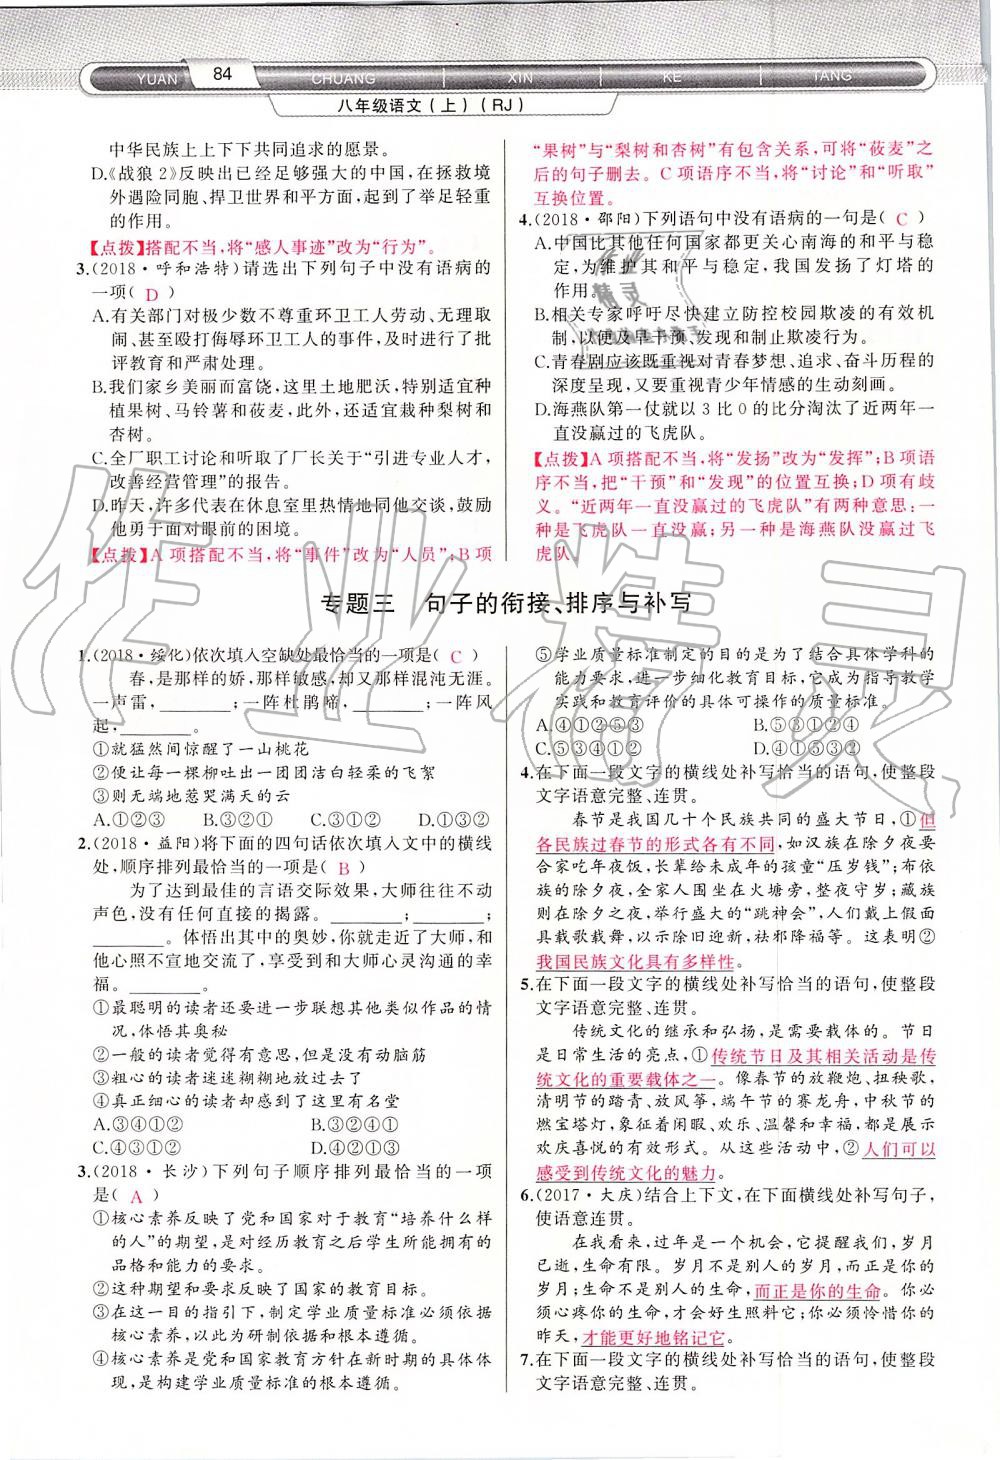 84
YUAN CHUANG XIN KE TANG
八年级语文(上)(RJ)
中华民族上上下下共同追求的愿景。
D.《战狼2》反映出已经足够强大的中国,在拯救境
外遇险同胞、捍卫世界和平方面,起到了举足轻重
的作用。
【点拨】搭配不当,将“感人事迹”改为“行为”。
3.(2018·呼和浩特)请选出下列句子中没有语病的
一项( D )
A.有关部门对极少数不尊重环卫工人劳动、无理取
闹、甚至殴打侮辱环卫工人的事件,及时进行了批
评教育和严肃处理。
B.我们家乡美丽而富饶,这里土地肥沃,特别适宜种
植果树、马铃薯和莜麦,此外,还适宜栽种梨树和
杏树。
C.全厂职工讨论和听取了厂长关于“引进专业人才,
改善经营管理”的报告。
D.昨天,许多代表在休息室里热情地同他交谈,鼓励
他勇于面对眼前的困境。
【点拨】A项搭配不当,将“事件”改为“人员”;B项
“果树”与“梨树和杏树”有包含关系,可将“莜麦”之
后的句子删去。C项语序不当,将“讨论”和“听取”
互换位置。
4.(2018·邵阳)下列语句中没有语病的一句是( C )
A.中国比其他任何国家都更关心南海的和平与稳
定,为维护其和平与稳定,我国发扬了灯塔的
的作用。
B.相关专家呼吁尽快建立防控校园欺凌的有效机
制,以便及早干预、发现和制止欺凌行为。
C.青春剧应该既重视对青春梦想、追求、奋斗历程的
深度呈现,又要重视青少年情感的生动刻画。
D.海燕队第一仗就以3比0的比分淘汰了近两年一
直没赢过的飞虎队。
【点拨】A项搭配不当,将“发扬”改为“发挥”;B项语
序不当,把“干预”和“发现”的位置互换;D项有歧
义。“近两年一直没赢过的飞虎队”有两种意思:一
种是飞虎队一直没赢;另一种是海燕队没赢过飞
虎队
专题三 句子的衔接、排序与补写
1.(2018·绥化)依次填入空缺处最恰当的一项是( C )
春,是那样的娇,那样敏感,却又那样混沌无涯。
一声雷,________;一阵杜鹃啼,________;一阵风
起,________。
①就猛然间惊醒了一山桃花
②便让每一棵柳吐出一团团洁白轻柔的飞絮
③则无端地惹哭满天的云
A.①②③ B.②①③ C.③①② D.①③②
2.(2018·益阳)将下面的四句话依次填入文中的横线
处,顺序排列最恰当的一项是( B )
为了达到最佳的言语交际效果,大师往往不动
声色,没有任何直接的揭露。________;________;
________。体悟出其中的奥妙,你就走近了大师,和
他心照不宣地交流了,享受到和大师心灵沟通的幸
福。________。
①最聪明的读者还要进一步联想其他类似作品的情
况,体悟其奥秘
②一般的读者觉得有意思,但却没有动脑筋
③粗心的读者迷迷糊糊地放过去了
④真正细心的读者却感到了这里有名堂
A.③④①② B.③②④①
C.④③①② D.④③②①
3.(2018·长沙)下列句子顺序排列最恰当的一项
是( A )
①核心素养反映了党和国家对于教育“培养什么样
的人”的期望,是对经历教育之后学生所能拥有的
品格和能力的要求。
②这种期望和要求反映了国家的教育目标。
③在这一目的指引下,制定学业质量标准必须依据
核心素养,以此为研制依据和根本遵循。
④核心素养是党和国家教育方针在新时期的具体体
现,是构建学业质量标准的根本遵循。
⑤学业质量标准制定的目的是为了结合具体学科的
能力要求,进一步细化教育目标,它成为指导教学
实践和教育评价的具体可操作的质量标准。
A.④①②⑤③ B.⑤③①②④
C.⑤③④①② D.④①⑤③②
4.在下面一段文字的横线处补写恰当的语句,使整段
文字语意完整、连贯。
春节是我国几十个民族共同的盛大节日,①但
各民族过春节的形式各有不同,如汉族在除夕夜要
合家吃年夜饭,长辈给未成年的孩童“压岁钱”;布依
族的除夕夜,全家人围坐在火塘旁,整夜守岁;藏族
则在除夕之夜,举行盛大的“跳神会”,人们戴上假面
具载歌载舞,以示除旧迎新,祛邪降福等。这表明②
我国民族文化具有多样性。
5.在下面一段文字的横线处补写恰当的语句,使整段
文字语意完整、连贯。
传统文化的继承和弘扬,是需要载体的。节日
是日常生活的亮点,①传统节日及其相关活动是传
统文化的重要载体之一。像春节的放鞭炮、扭秧歌,
清明节的踏青、放风筝,端午节的赛龙舟,中秋节的
燃宝塔灯,象征着闲暇、欢乐、温馨和幸福,都是展示
欢庆喜悦的有效形式。从这些活动中,②人们可以
感受到传统文化的魅力。
6.(2017·大庆)结合上下文,在下面横线处补写句子,
使语意连贯。
在我看来,过年是一个机会,它提醒我们,岁月
已逝,生命有限。岁月不是别人的岁月,而是你的
岁月;生命不是别人的生命,而正是你的生命。你必
须心疼你的生命,才会好生照料它;你必须怜惜你的
昨天,才能更好地铭记它。
7.在下面一段文字的横线处补写恰当的语句,使整段
文字语意完整、连贯。
作业精灵